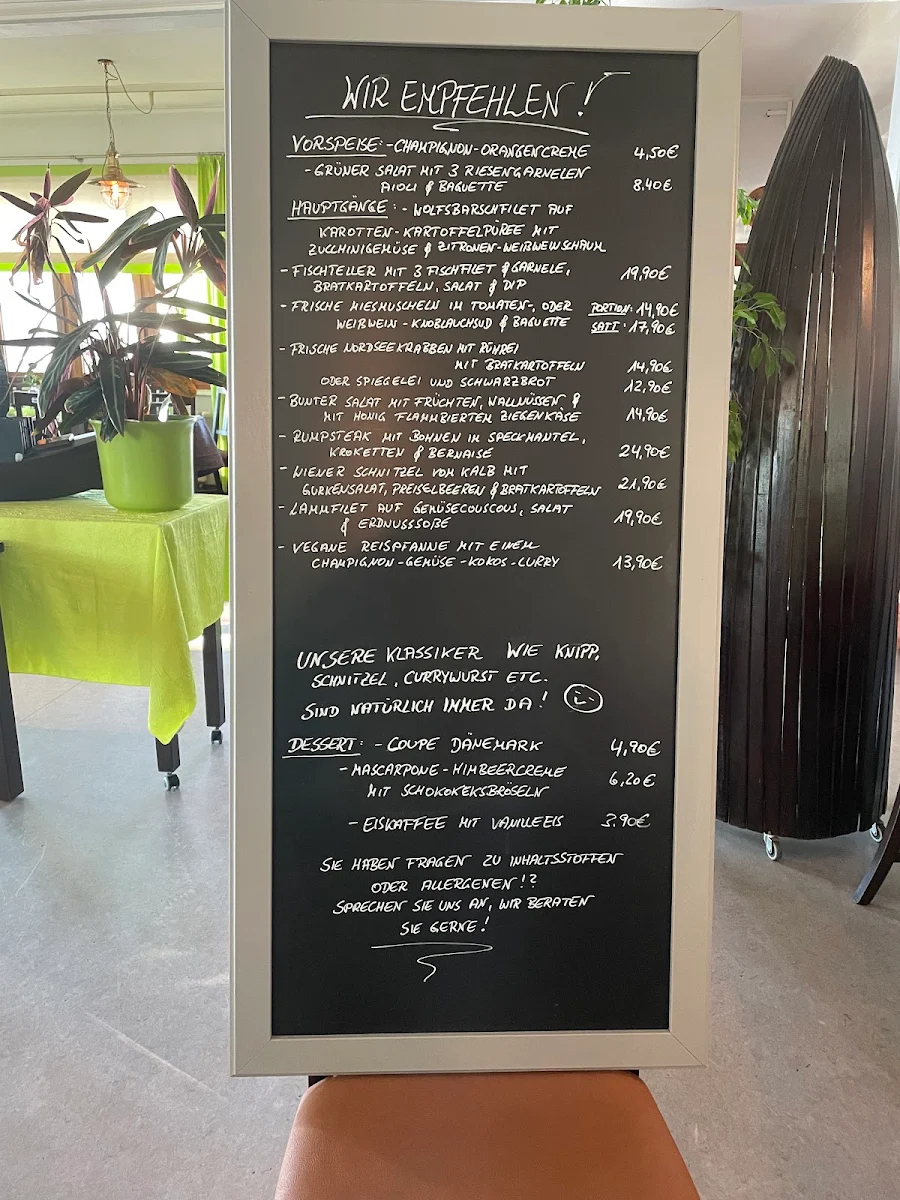 WIR EMPFEHLEN!
VORSPEISE: - CHAMPIGNON-ORANGENCREME 4,50€
- GRÜNER SALAT MIT 3 RIESENGARNELEN
AIOLI & BAGUETTE 8.40€
HAUPTGÄNGE: - WOLFSBARSCHFILET AUF
KAROTTEN-KARTOFFELPÜREE MIT
ZUCCHINIGEMÜSE & ZITRONEN-WEIßWEINSCHAUM
- FISCHTELLER MIT 3 FISCHFILET & GARNELE, 19,90€
BRATKARTOFFELN, SALAT & DIP
- FRISCHE MIESMUSCHELN IM TOMATEN-, ODER PORTION: 14,90€
WEIßWEIN-KNOBLAUCHSUD & BAGUETTE SATT: 17,90€
- FRISCHE NORDSEEKRABBEN MIT RÜHREI
MIT BRATKARTOFFELN 14,90€
ODER SPIEGELEI UND SCHWARZBROT 12,90€
- BUNTER SALAT MIT FRÜCHTEN, WALLNÜSSEN &
MIT HONIG FLAMMBIERTEN ZIEGENKÄSE 14,90€
- RUMPSTEAK MIT BOHNEN IM SPECKMANTEL,
KROKETTEN & BERNAISE 24,90€
- WIENER SCHNITZEL VOM KALB MIT
GURKENSALAT, PREISELBEEREN & BRATKARTOFFELN 21,90€
- LAMMFILET AUF GEMÜSECOUSCOUS, SALAT
& ERDNUSSSOßE 19,90€
- VEGANE REISPFANNE MIT EINEM
CHAMPIGNON-GEMÜSE-KOKOS-CURRY 13,90€
UNSERE KLASSIKER WIE KNIPP,
SCHNITZEL, CURRYWURST ETC.
SIND NATÜRLICH IMMER DA!
DESSERT: - COUPE DÄNEMARK 4,90€
- MASCARPONE-HIMBEERCREME 6,20€
MIT SCHOKOKEKSBRÖSELN
- EISKAFFEE MIT VANILLEEIS 3.90€
SIE HABEN FRAGEN ZU INHALTSSTOFFEN
ODER ALLERGENEN!?
SPRECHEN SIE UNS AN, WIR BERATEN
SIE GERNE!